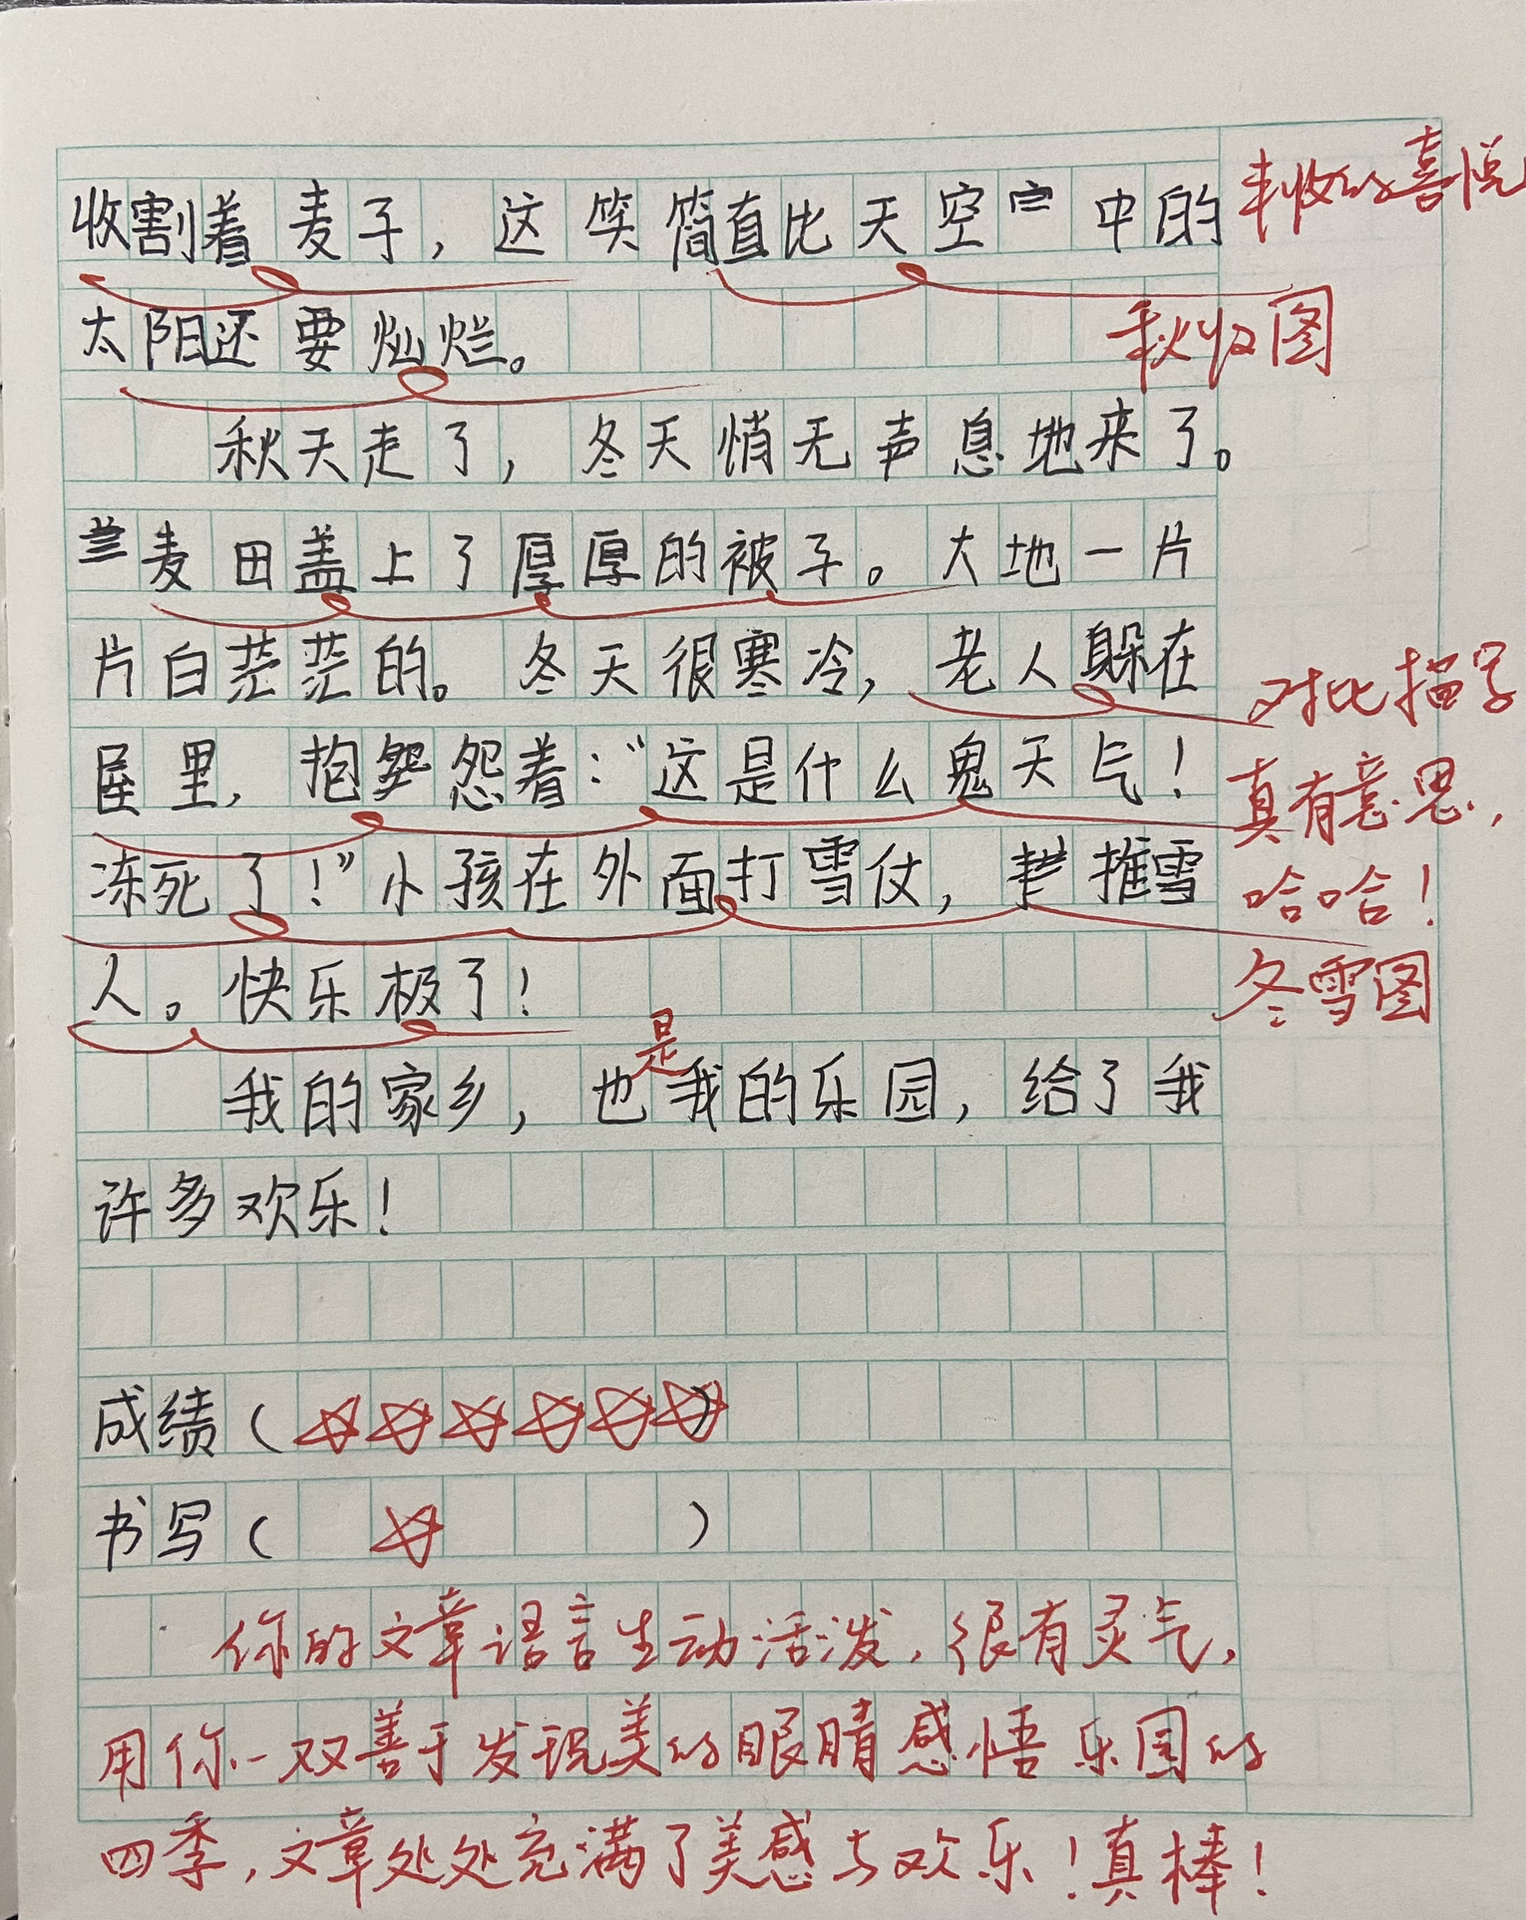 收割着麦子，这笑简直比天空中的
丰收的喜悦
太阳还要灿烂。
秋收图
秋天走了，冬天悄无声息地来了。
麦田盖上了厚厚的被子。大地一片
片白茫茫的。冬天很寒冷，老人躲在
对比描写
屋里，抱怨着：“这是什么鬼天气！
真有意思，
冻死了！”小孩在外面打雪仗，推雪
哈哈！
人。快乐极了！
冬雪图
是
我的家乡，也我的乐园，给了我
许多欢乐！
成绩（☆☆☆☆☆☆）
书写（ ☆ ）
你的文章语言生动活泼，很有灵气，
用你一双善于发现美的眼睛感悟乐园的
四季，文章处处充满了美感与欢乐！真棒！